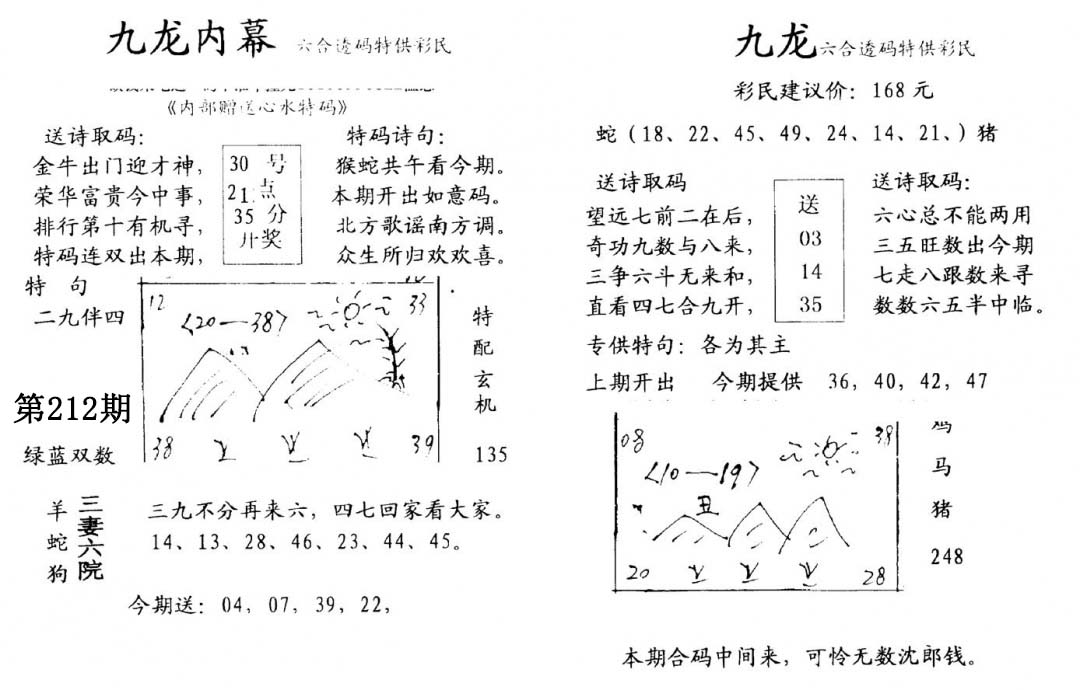 九龙内幕 六合透码特供彩民
《内部赠送心水特码》
送诗取码：
金牛出门迎才神，
荣华富贵今中事，
排行第十有机寻，
特码连双出本期，
30 号
21 点
35 分
开奖
特码诗句：
猴蛇共午看今期。
本期开出如意码。
北方歌谣南方调。
众生所归欢欢喜。
特 句
二九伴四
第212期
绿蓝双数
12
33
〈20—38〉
38
39
特
配
玄
机
135
羊
蛇
狗
三妻六院
三九不分再来六，四七回家看大家。
14、13、28、46、23、44、45。
今期送：04，07，39，22，
九龙六合透码特供彩民
彩民建议价：168 元
蛇（18、22、45、49、24、14、21、）猪
送诗取码
望远七前二在后，
奇功九数与八来，
三争六斗无来和，
直看四七合九开，
送
03
14
35
送诗取码：
六心总不能两用
三五旺数出今期
七走八跟数来寻
数数六五半中临。
专供特句：各为其主
上期开出 今期提供 36，40，42，47
08
38
〈10—19〉
丑
20
28
鸡
马
猪
248
本期合码中间来，可怜无数沈郎钱。